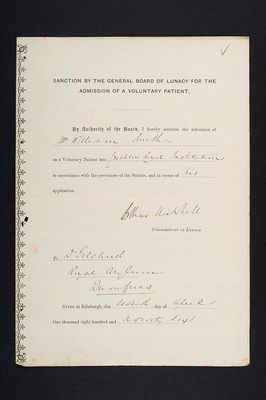 SANCTION BY THE GENERAL BOARD OF LUNACY FOR THE
ADMISSION OF A VOLUNTARY PATIENT.
By Authority of the Board, I hereby sanction the admission of
Mr William Smith
as a Voluntary Patient into Crichton Royal Institution
in accordance with the provisions of the Statute, and in terms of his
application.
Commissioner in Lunacy
To Dr Gilchrist
Royal Asylum
Dumfries
Given at Edinburgh, this day of April
One thousand eight hundred and seventy six